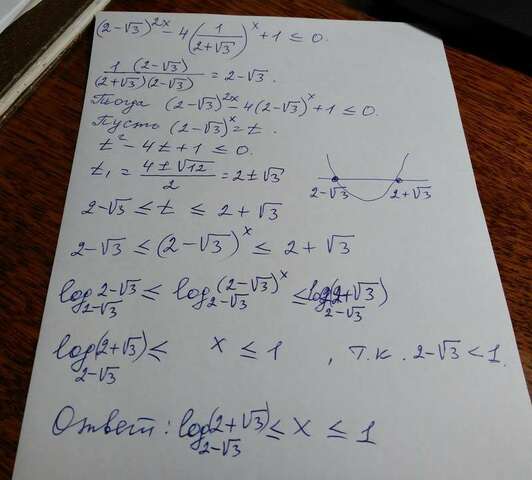 (2-√3)^2x - 4(1/(2+√3))^x + 1 ≤ 0.
1 (2-√3)/((2+√3)(2-√3)) = 2-√3.
Тогда (2-√3)^2x - 4(2-√3)^x + 1 ≤ 0.
Пусть (2-√3)^x = t.
t² - 4t + 1 ≤ 0.
t₁ = (4 ± √12)/2 = 2 ± √3
2-√3 2+√3
2-√3 ≤ t ≤ 2+√3
2-√3 ≤ (2-√3)^x ≤ 2+√3
log_2-√3 2-√3 ≤ log_2-√3 (2-√3)^x ≤ log_2-√3 (2+√3)
log_2-√3 (2+√3) ≤ x ≤ 1, т.к. 2-√3 < 1.
Ответ: log_2-√3 (2+√3) ≤ x ≤ 1